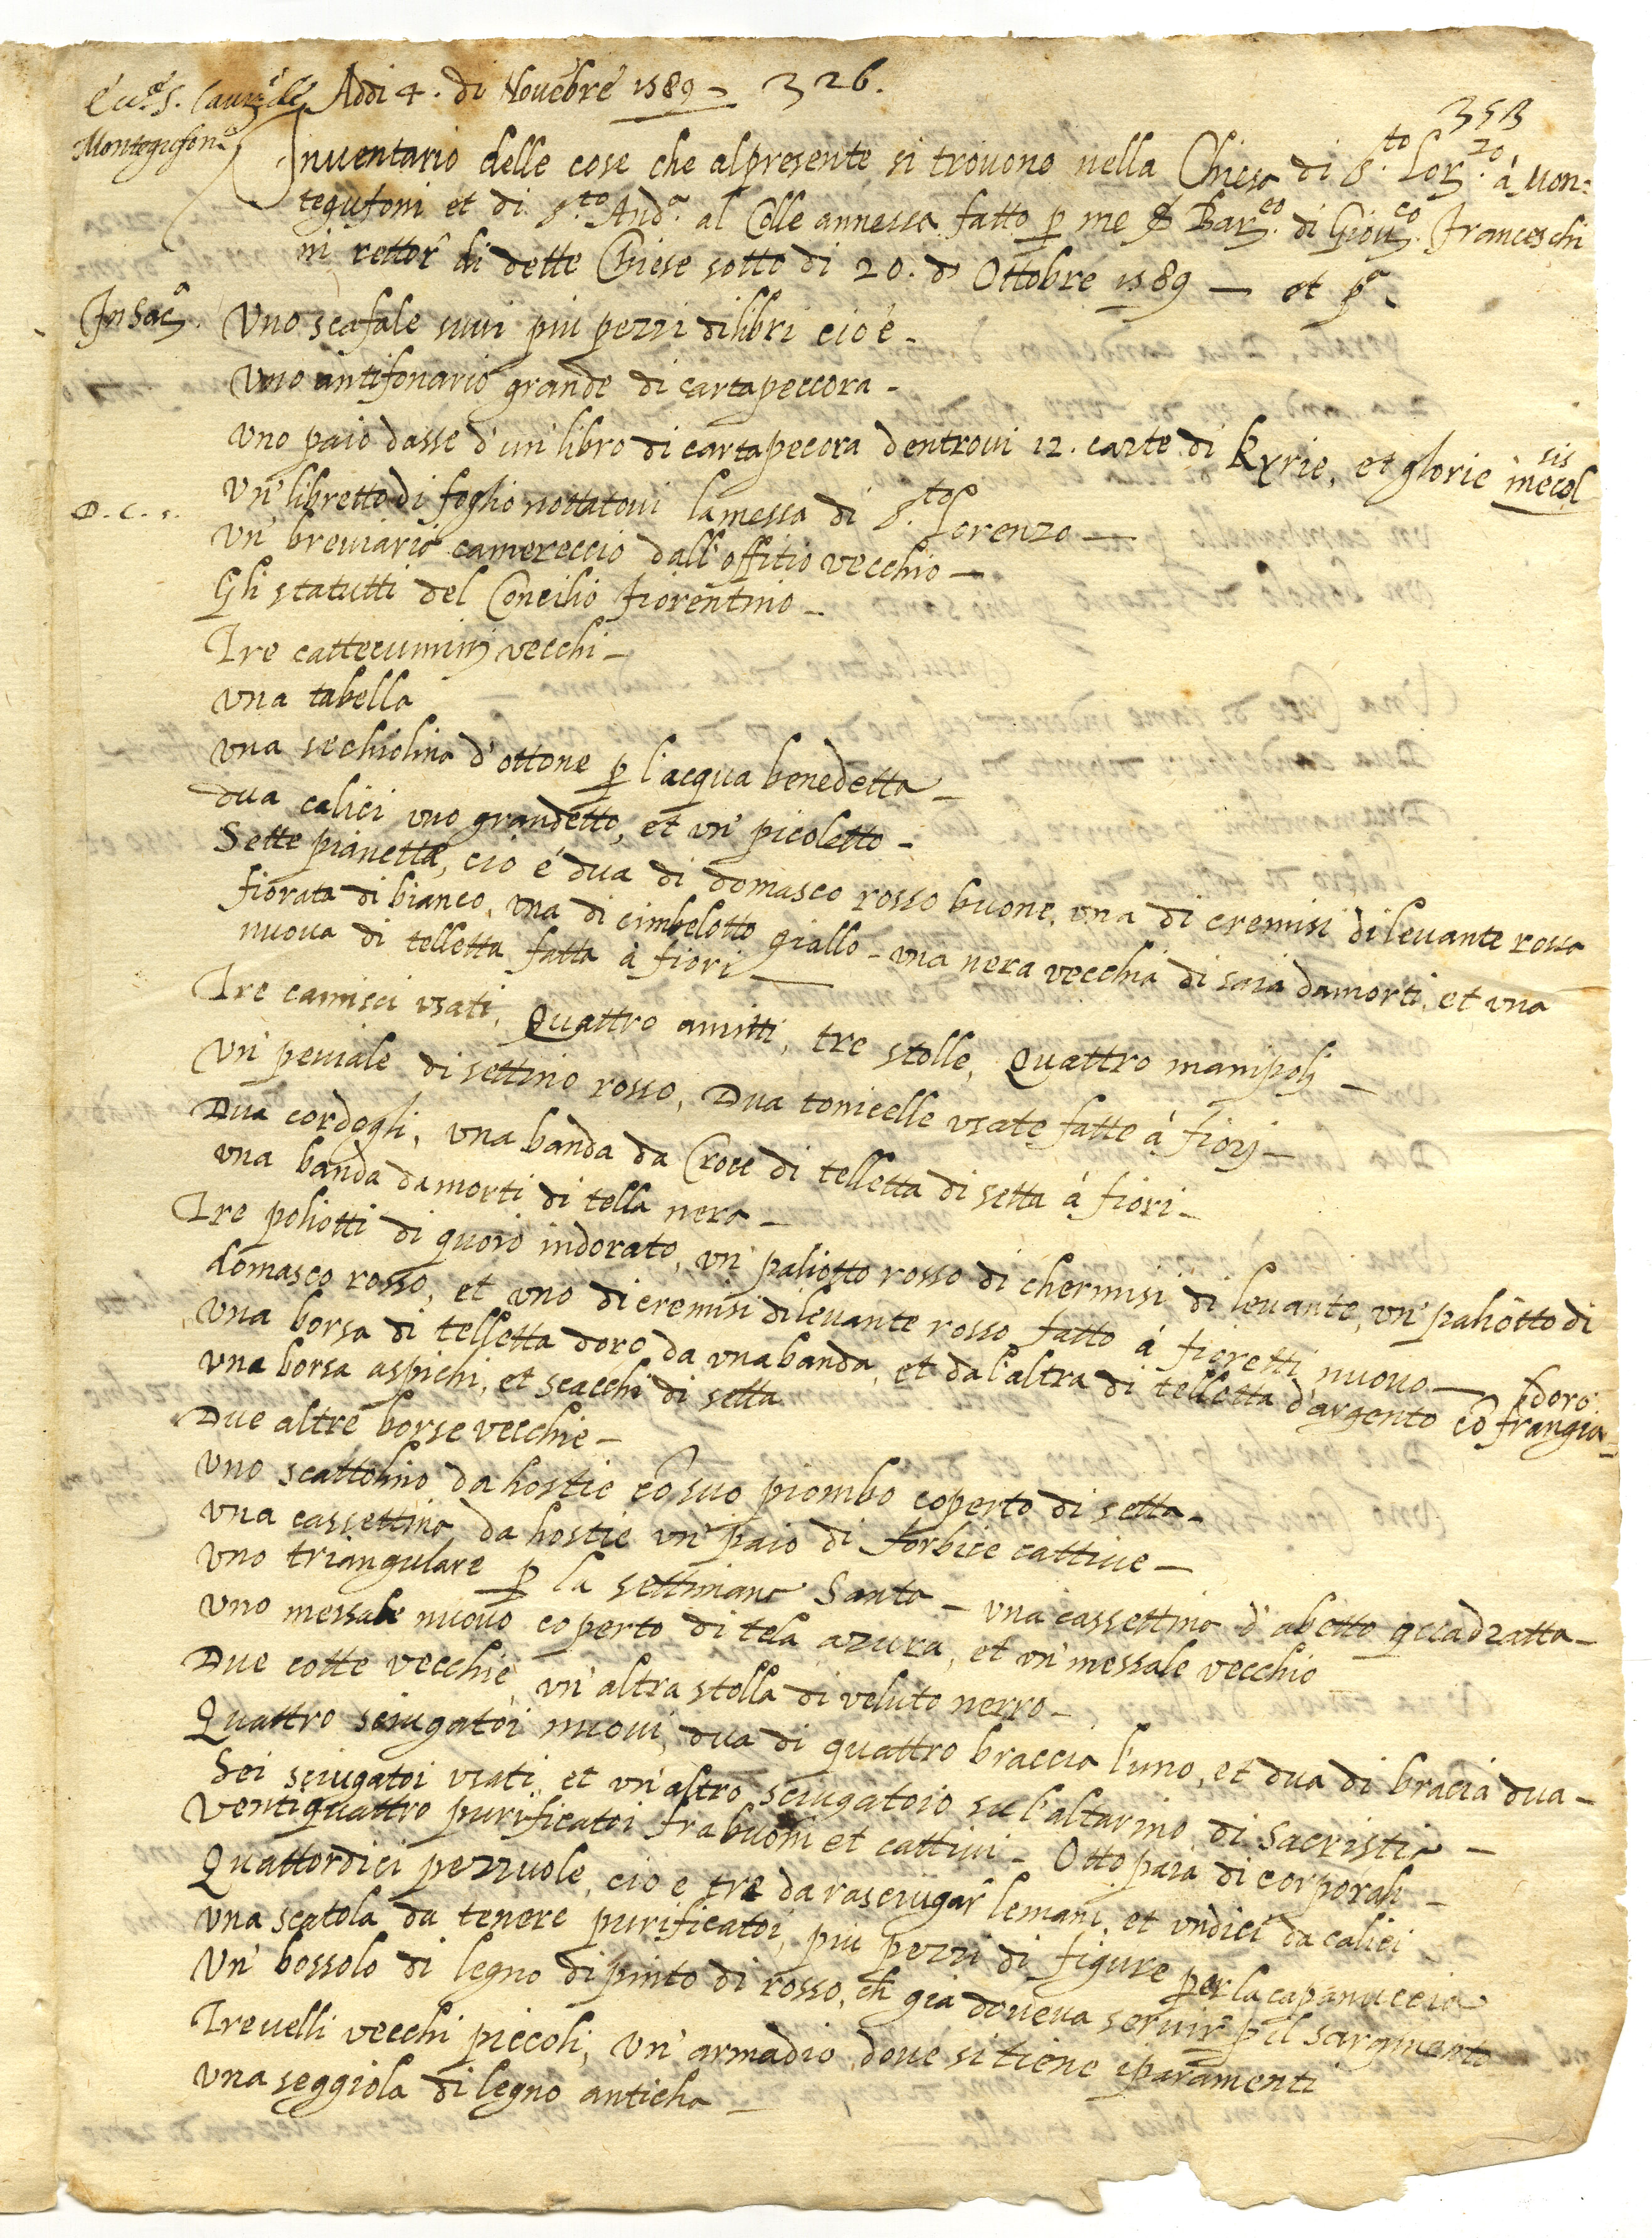 Addi 4. di Nouẽbre 1589 — 326.
353
Montegufon.e
Inuentario delle cose che alpresente si trouono nella Chiesa di S.to Lor.zo à Mon:
tegufoni et di S.to And.a al Colle annessa fatto p me Bar.eo di Giou. Franceschi
ni rettor di dette Chiese sotto di 20. d' Ottobre 1589 — et p.a
In Sac.a
Vno scafale suui piu pezzi dilibri cioè —
Vno antifonario grande di cartapeccora —
Vno paio dasse d'un' libro di cartapecora dentroui 12. carte di Kyrie, et glorie
Vn' libretto di foglio nottatoui lamessa di S.to Lorenzo —
Vn' breuiario camereccio dall'offitio vecchio —
Gli statutti del Concilio Fiorentino —
Tre cattecuminj vecchi —
Vna tabella
Vna sechiolina d'ottone p l'acqua benedetta —
Dua calici vno grandetto, et vn' picoletto —
Sette pianette, cio è dua di domasco rosso buone, vna di cremisi dileuante rossa
fiorata di bianco, vna di cimbelotto giallo — vna nera vecchia di saia damorti, et vna
nuoua di telletta fatta à fiori —
Tre camisci vsati, Quattro amitti, tre stolle, Quattro manipolj —
Vn' peuiale di settino rosso, Dua tonicelle vsate fatte à fiorj —
Dua cordogli, vna banda da Croce di telletta di setta à fiori —
vna banda damorti di tella nera —
Tre poliotti di quoio indorato, vn' paliotto rosso di chermisi di leuante, vn' paliotto di
domasco rosso, et vno dicremisi dileuante rosso fatto à fioretti nuouo —
Vna borsa di telletta doro da vnabanda, et dal'altra di telletta d'argento cõ frangia doro.
Vna borsa aspichi, et scacchi di setta
Due altre borse vecchie —
Vno scattolino da hostie cõ suo piombo coperto di setta —
Vna cassettina da hostie vn' paio di forbice cattiue —
Vno triangulare p la settimana Santa — vna cassettina d'abetto qccadratta —
Vno messale nuouo coperto di tela azura, et vn' messale vecchio
Due cotte vecchie, vn' altra stolla di veluto nerro —
Quattro sciugatoi nuoui, dua di quattro braccia l'uno, et dua di bracia dua —
Sei sciugatoi vsati, et vn' altro sciugatoio su l'altarino di Sacristia —
Ventiquattro purificatoi fra buoni et cattiui — Otto paia di corporali —
Quattordici pezzuole, cio e tre da rasciugar lemani, et vndici da calici
Vna scatola da tenere purificatoi, piu pezzi di figure per la capannuccia
Vn' bossolo di legno dipinto di rosso, ch gia doueua seruir p il sargmento
Treuelli vecchi piccoli, Vn' armadio doue si tiene iparamenti
Vna seggiola di legno anticha —